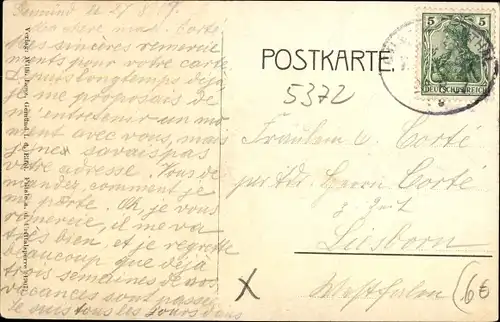 Gemünd le 27 8 09.
Ma chère mad. Corté
Mes sincères remercie
ments pour votre carte.
Depuis longtemps déjà
je me proposais de
m'entretenir un mo
ment avec vous, mais
je ne savais pas
votre adresse. Vous de
mandez comment je
me porte. Oh, je vous
remercie, il me va
très bien, et je regrette
beaucoup que déjà
trois semaines de nos
vacances sont passées
Je suis tous les jours dans
POSTKARTE
5372
5 5
DEUTSCHES REICH
Fräulein v. Corté
per Adr. Herrn Corté
z. Zeit
Liesborn
Westfalen
X
6€